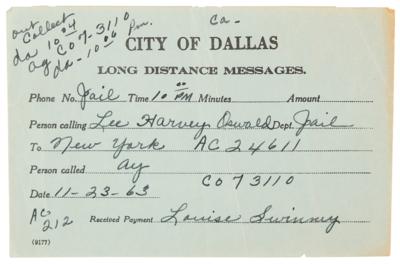 out
Collect ca-
da 10 04
ag CO7-3110
da-10 06 pm.
CITY OF DALLAS
LONG DISTANCE MESSAGES.
Phone No. Jail Time 10 00 PM Minutes Amount
Person calling Lee Harvey Oswald Dept. Jail
To New York AC 24611
Person called ay
CO 73110
Date 11-23-63
AC
212 Received Payment Louise Swinney
(9177)